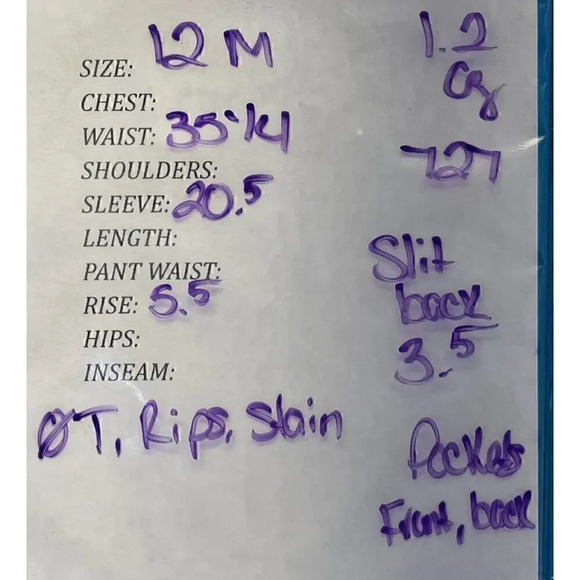 SIZE: 12 M
CHEST:
WAIST: 35
SHOULDERS:
SLEEVE: 20.5
LENGTH:
PANT WAIST:
RISE: 5.5
HIPS:
INSEAM:
ØT, Rips, Stain
1.2
727
Slit
back
3.5
Pockets
Front, back